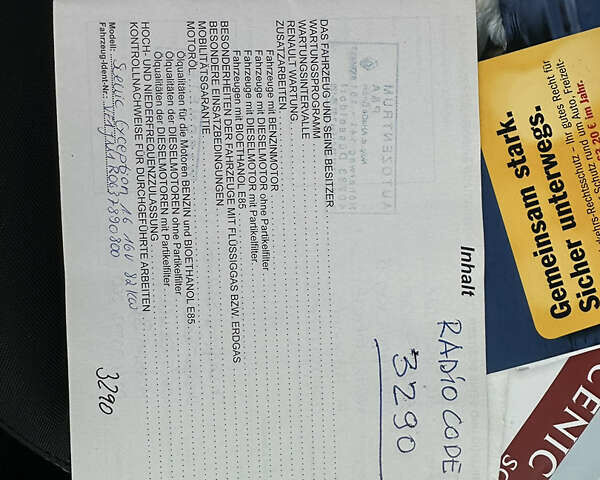 RADIO CODE
3290
Inhalt
DAS FAHRZEUG UND SEINE BESITZER
WARTUNGSPROGRAMM
WARTUNGSINTERVALLE
RENAULT WARTUNG
ZUSATZARBEITEN
Fahrzeuge mit BENZINMOTOR
Fahrzeuge mit DIESELMOTOR ohne Partikelfilter
Fahrzeuge mit DIESELMOTOR mit Partikelfilter
Fahrzeuge mit BIOETHANOL E85
BESONDERHEITEN DER FAHRZEUGE MIT FLÜSSIGGAS BZW. ERDGAS
BESONDERE EINSATZBEDINGUNGEN
MOBILITÄTSGARANTIE
MOTORÖL
Ölqualitäten für die Motoren BENZIN und BIOETHANOL E85
Ölqualitäten der DIESELMOTOREN ohne Partikelfilter
Ölqualitäten der DIESELMOTOREN mit Partikelfilter
HOCH- UND NIEDERFREQUENZZULASSUNG
KONTROLLNACHWEISE FÜR DURCHGEFÜHRTE ARBEITEN
Modell: Exception 1.6 16V 82 KW
Fahrzeug-Ident-Nr.:
3290
Gemeinsam stark.
Sicher unterwegs.
-Rechtsschutz – Ihr gutes Recht für
Schutz rund um Auto, Freizeit-
€ im Jahr.
CENIC